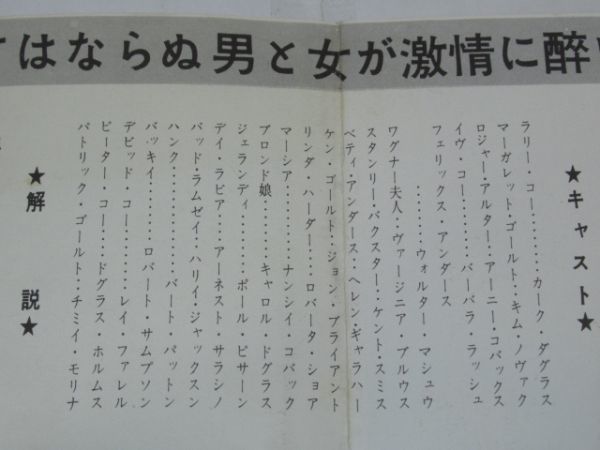 てはならぬ男と女が激情に酔い
★キャスト★
ラリー・コー………カーク・ダグラス
マーガレット・ゴールト‥キム・ノヴァク
ロジャー・アルター‥アーニー・コバックス
イヴ・コー………バーバラ・ラッシュ
フェリックス・アンダース
………ウォルター・マシュウ
ワグナー夫人‥ヴァージニア・ブルウス
スタンリー・バクスター‥ケント・スミス
ベティ・アンダース‥ヘレン・ギャラハー
ケン・ゴールト‥ジョン・ブライアント
リンダ・ハーダー……ロバータ・ショア
マーシア………ナンシイ・コバック
ブロンド娘………キャロル・ドグラス
ジェランディ………ポール・ピサーン
デイ・ラビア……アーネスト・サラシノ
バッド・ラムゼイ‥ハリイ・ジャックスン
ハンク………バート・パットン
バッキイ………ロバート・サムプソン
デビッド・コー………レイ・ファレル
ピーター・コー……ドグラス・ホルムス
パトリック・ゴールト‥チミイ・モリナ
★解説★